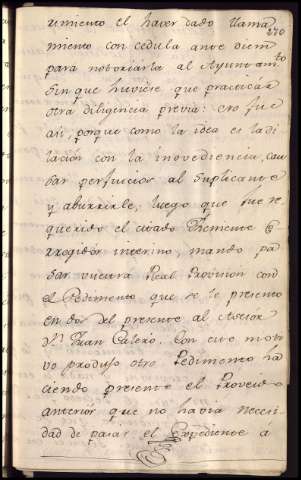 270
uimiento el haver dado llama
miento con cedula ante diem
para notoriarla al Ayuntamto
sin que huviere que practicar
otra diligencia previa: ero fue
asi, porque como la idea es la di
lacion con la inovediencia, cau
sar perjuicios al suplicante
y aburrirle, luego que fue re
querido el citado Theniente Co
rregidor interino, mando pa
sar vuestra Real Provision con
el Pedimento que se le presento
en dos del presente al Asesor
Dn. Juan Calero. Con este moti
vo produjo otro Pedimento ha
ciendo presente el Proveido
anterior que no havia necesi
dad de pasar el Expediente á